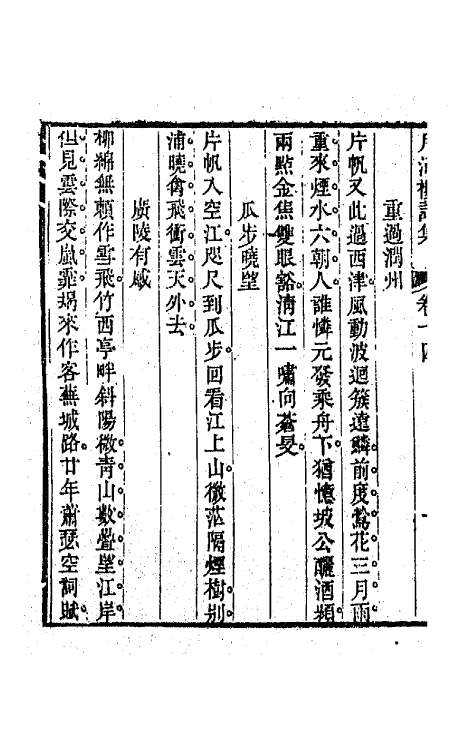 樓詩集 卷十四
重過潤州
片帆又此過西津風動波迴簇遠鱗前度鶯花三月雨
重來煙水六朝人誰憐元發乘舟下猶憶坡公釃酒頻
兩點金焦雙眼豁清江一嘯向蒼旻
瓜步曉望
片帆入空江咫尺到瓜步回看江上山微茫隔煙樹別
浦曉禽飛衝雲天外去
廣陵有感
柳綿無賴作雪飛竹西亭畔斜陽微青山數疊望江岸
但見雲際交嵐霏朅來作客蕪城路廿年蕭瑟空詞賦